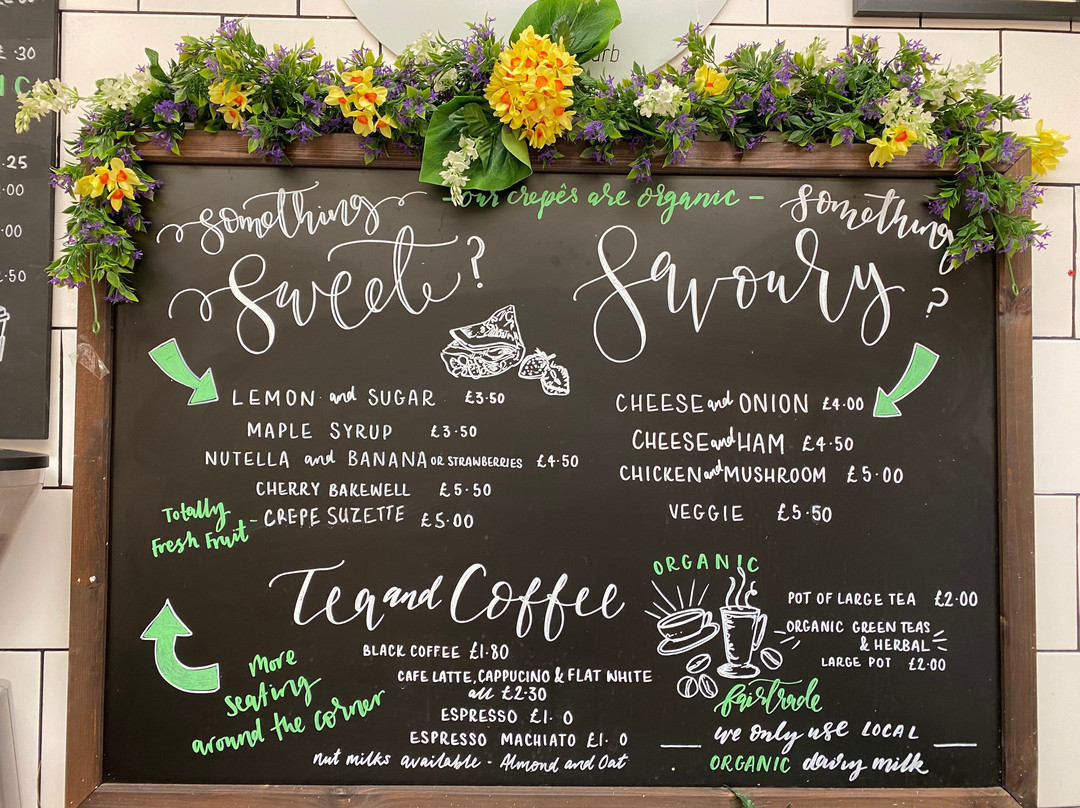 arb
.30
C
.25
.00
.00
.50
- our crepês are organic -
something
Sweet?
LEMON and SUGAR £3·50
MAPLE SYRUP £3·50
NUTELLA and BANANA OR STRAWBERRIES £4·50
CHERRY BAKEWELL £5·50
- CREPE SUZETTE £5·00
Totally
Fresh Fruit
Something
Savoury?
CHEESE and ONION £4·00
CHEESE and HAM £4·50
CHICKEN and MUSHROOM £5·00
VEGGIE £5·50
Tea and Coffee
BLACK COFFEE £1·80
CAFE LATTE, CAPPUCINO & FLAT WHITE
all £2·30
ESPRESSO £1· 0
ESPRESSO MACHIATO £1· 0
nut milks available - Almond and Oat
More
seating
around the corner
ORGANIC
POT OF LARGE TEA £2·00
ORGANIC GREEN TEAS
& HERBAL
LARGE POT £2·00
fairtrade
we only use LOCAL
ORGANIC dairy milk